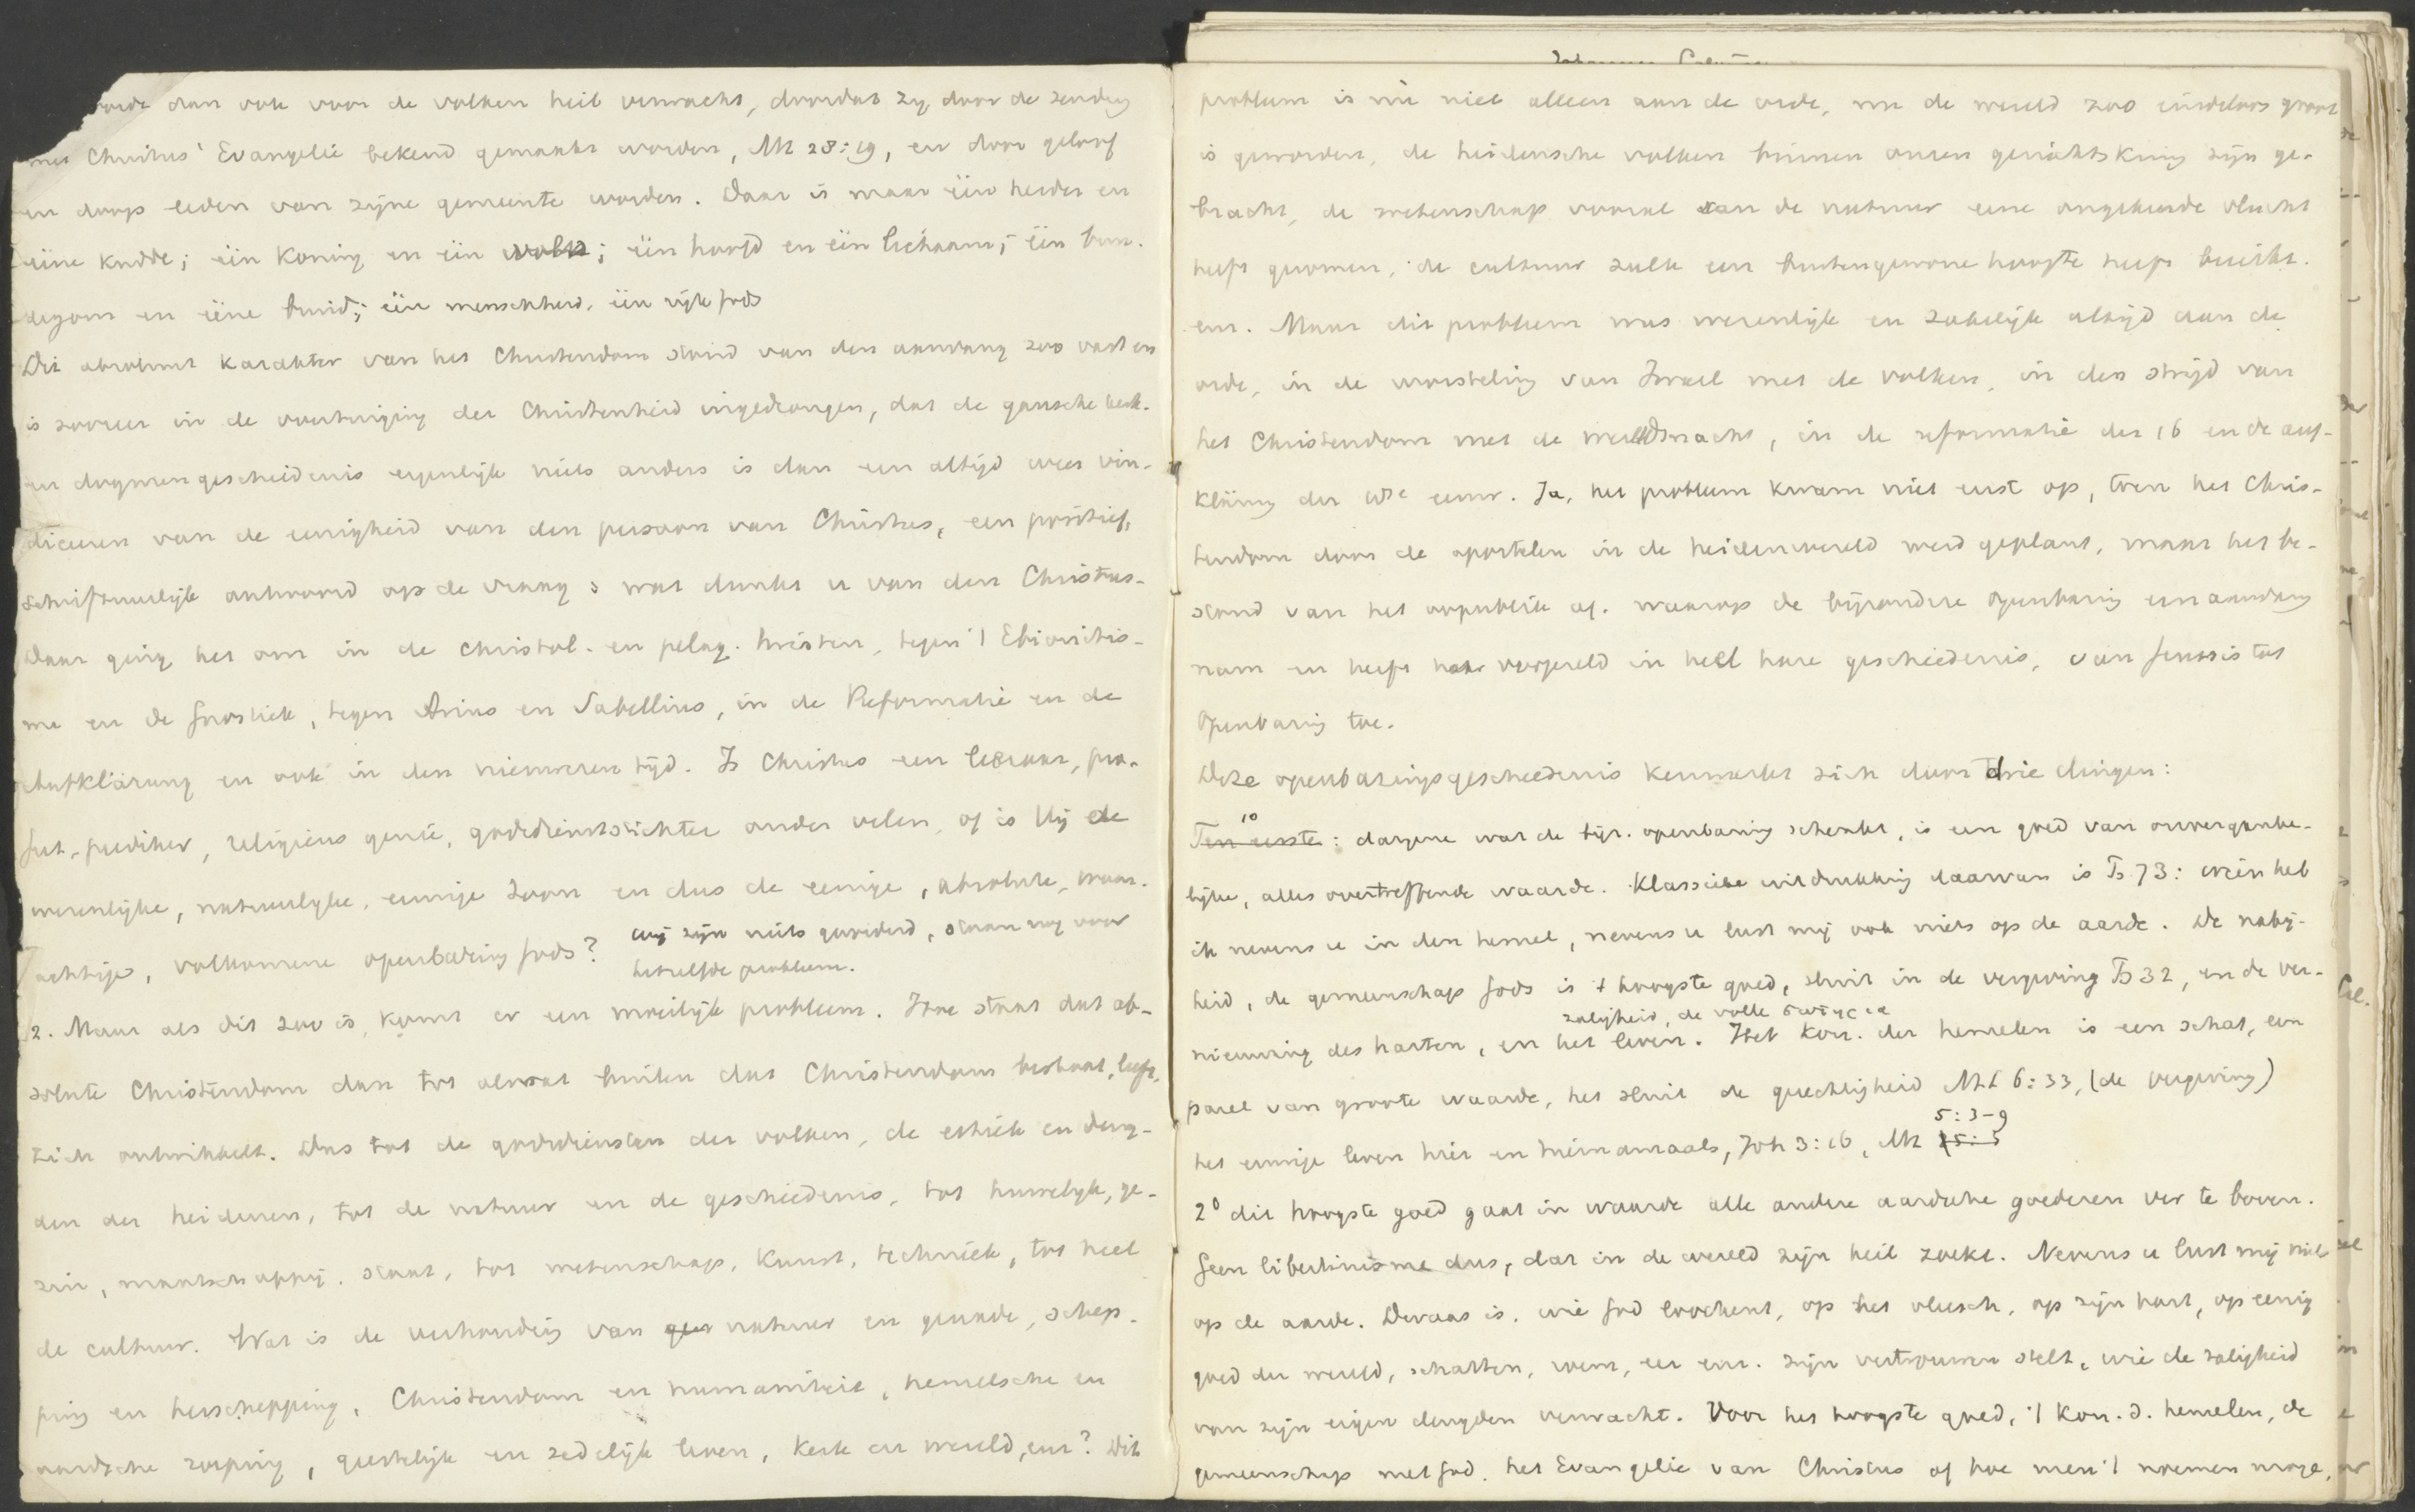 wordt dan ook voor de volken heil verwacht, doordat zij door de zending
met Christus' Evangelie bekend gemaakt worden, Mt 28:19, en door geloof
en doop leden van zijne gemeente worden. Daar is maar één herder en
ééne kudde; één Koning en één volk; één hoofd en één lichaam; één brui-
degom en ééne bruid; één menschheid, één rijk Gods
Dit absoluut karakter van het Christendom stond van den aanvang zoo vast en
is zoozeer in de overtuiging der Christenheid ingedrongen, dat de gansche kerk-
en dogmengeschiedenis eigenlijk niets anders is dan een altijd weer vin-
diceeren van de eenigheid van den persoon van Christus, een positief,
schriftuurlijk antwoord op de vraag: wat dunkt u van den Christus-
Daar ging het om in de christol. en pelag. twisten, tegen 't Ebionitis-
me en de Gnostiek, tegen Arius en Sabellius, in de Reformatie en de
Aufklärung en ook in den nieuweren tijd. Is Christus een leeraar, pro-
feet, prediker, religieus genie, godsdienststichter onder velen, of is Hij de
wezenlijke, natuurlijke, eenige Zoon en dus de eenige, absolute, waar-
achtige, volkomene openbaring Gods? wij zijn niets gevorderd, staan nog voor
hetzelfde probleem.
2. Maar als dit zoo is, komt er een moeilijk probleem. Hoe staat dat ab-
solute Christendom dan tot alwat buiten dat Christendom bestaat, leeft,
zich ontwikkelt. Dus tot de godsdiensten der volken, de ethiek en deug-
den der heidenen, tot de natuur en de geschiedenis, tot huwelijk, ge-
zin, maatschappij, staat, tot wetenschap, kunst, techniek, tot heel
de cultuur. Wat is de verhouding van natuur en genade, schep-
ping en herschepping, Christendom en humaniteit, hemelsche en
aardsche roeping, geestelijk en zedelijk leven, kerk en wereld, enz? Dit
probleem is nu niet alleen aan de orde, nu de wereld zoo eindeloos groot
is geworden, de heidensche volken binnen onzen gezichtskring zijn ge-
bracht, de wetenschap vooral van de natuur eene ongekende vlucht
heeft genomen, de cultuur zulk een buitengewone hoogte heeft bereikt.
enz. Maar dit probleem was wezenlijk en zakelijk altijd aan de
orde, in de worsteling van Israel met de volken, in den strijd van
het Christendom met de wereldmacht, in de reformatie der 16 en de auf-
klärung der 18e eeuw. Ja, het probleem kwam niet eerst op, toen het Chris-
tendom door de apostelen in de heidenwereld werd geplant, maar het be-
stond van het oogenblik af, waarop de bijzondere openbaring een aanvang
nam en heeft haar vergezeld in heel hare geschiedenis, van Genesis tot
Openbaring toe.
Deze openbaringsgeschiedenis kenmerkt zich door drie dingen:
1o
Ten eerste: datgene wat de bijz. openbaring schenkt, is een goed van onverganke-
lijke, alles overtreffende waarde. Klassieke uitdrukking daarvan is Ps 73: wien heb
ik nevens u in den hemel, nevens u lust mij ook niets op de aarde. De nabij-
heid, de gemeenschap Gods is 't hoogste goed, sluit in de vergeving Ps 32, en de ver-
zaligheid, de volle σωτηρια
nieuwing des harten, en het leven. Het kon. der hemelen is een schat, een
parel van groote waarde, het sluit de gerechtigheid Mt 6:33, (de vergeving)
5:3-9
het eeuwige leven hier en hiernamaals, Joh 3:16, Mt 15:5
2o dit hoogste goed gaat in waarde alle andere aardsche goederen ver te boven.
Geen libertinisme dus, dat in de wereld zijn heil zoekt. Nevens u lust mij niets
op de aarde. Dwaas is, wie God loochent, op het vleesch, op zijn hart, op eenig
goed der wereld, schatten, eer enz. zijn vertrouwen stelt, wie de zaligheid
van zijn eigen deugden verwacht. Voor het hoogste goed, 't kon. d. hemelen, de
gemeenschap met God, het Evangelie van Christus of hoe men 't noemen moge,